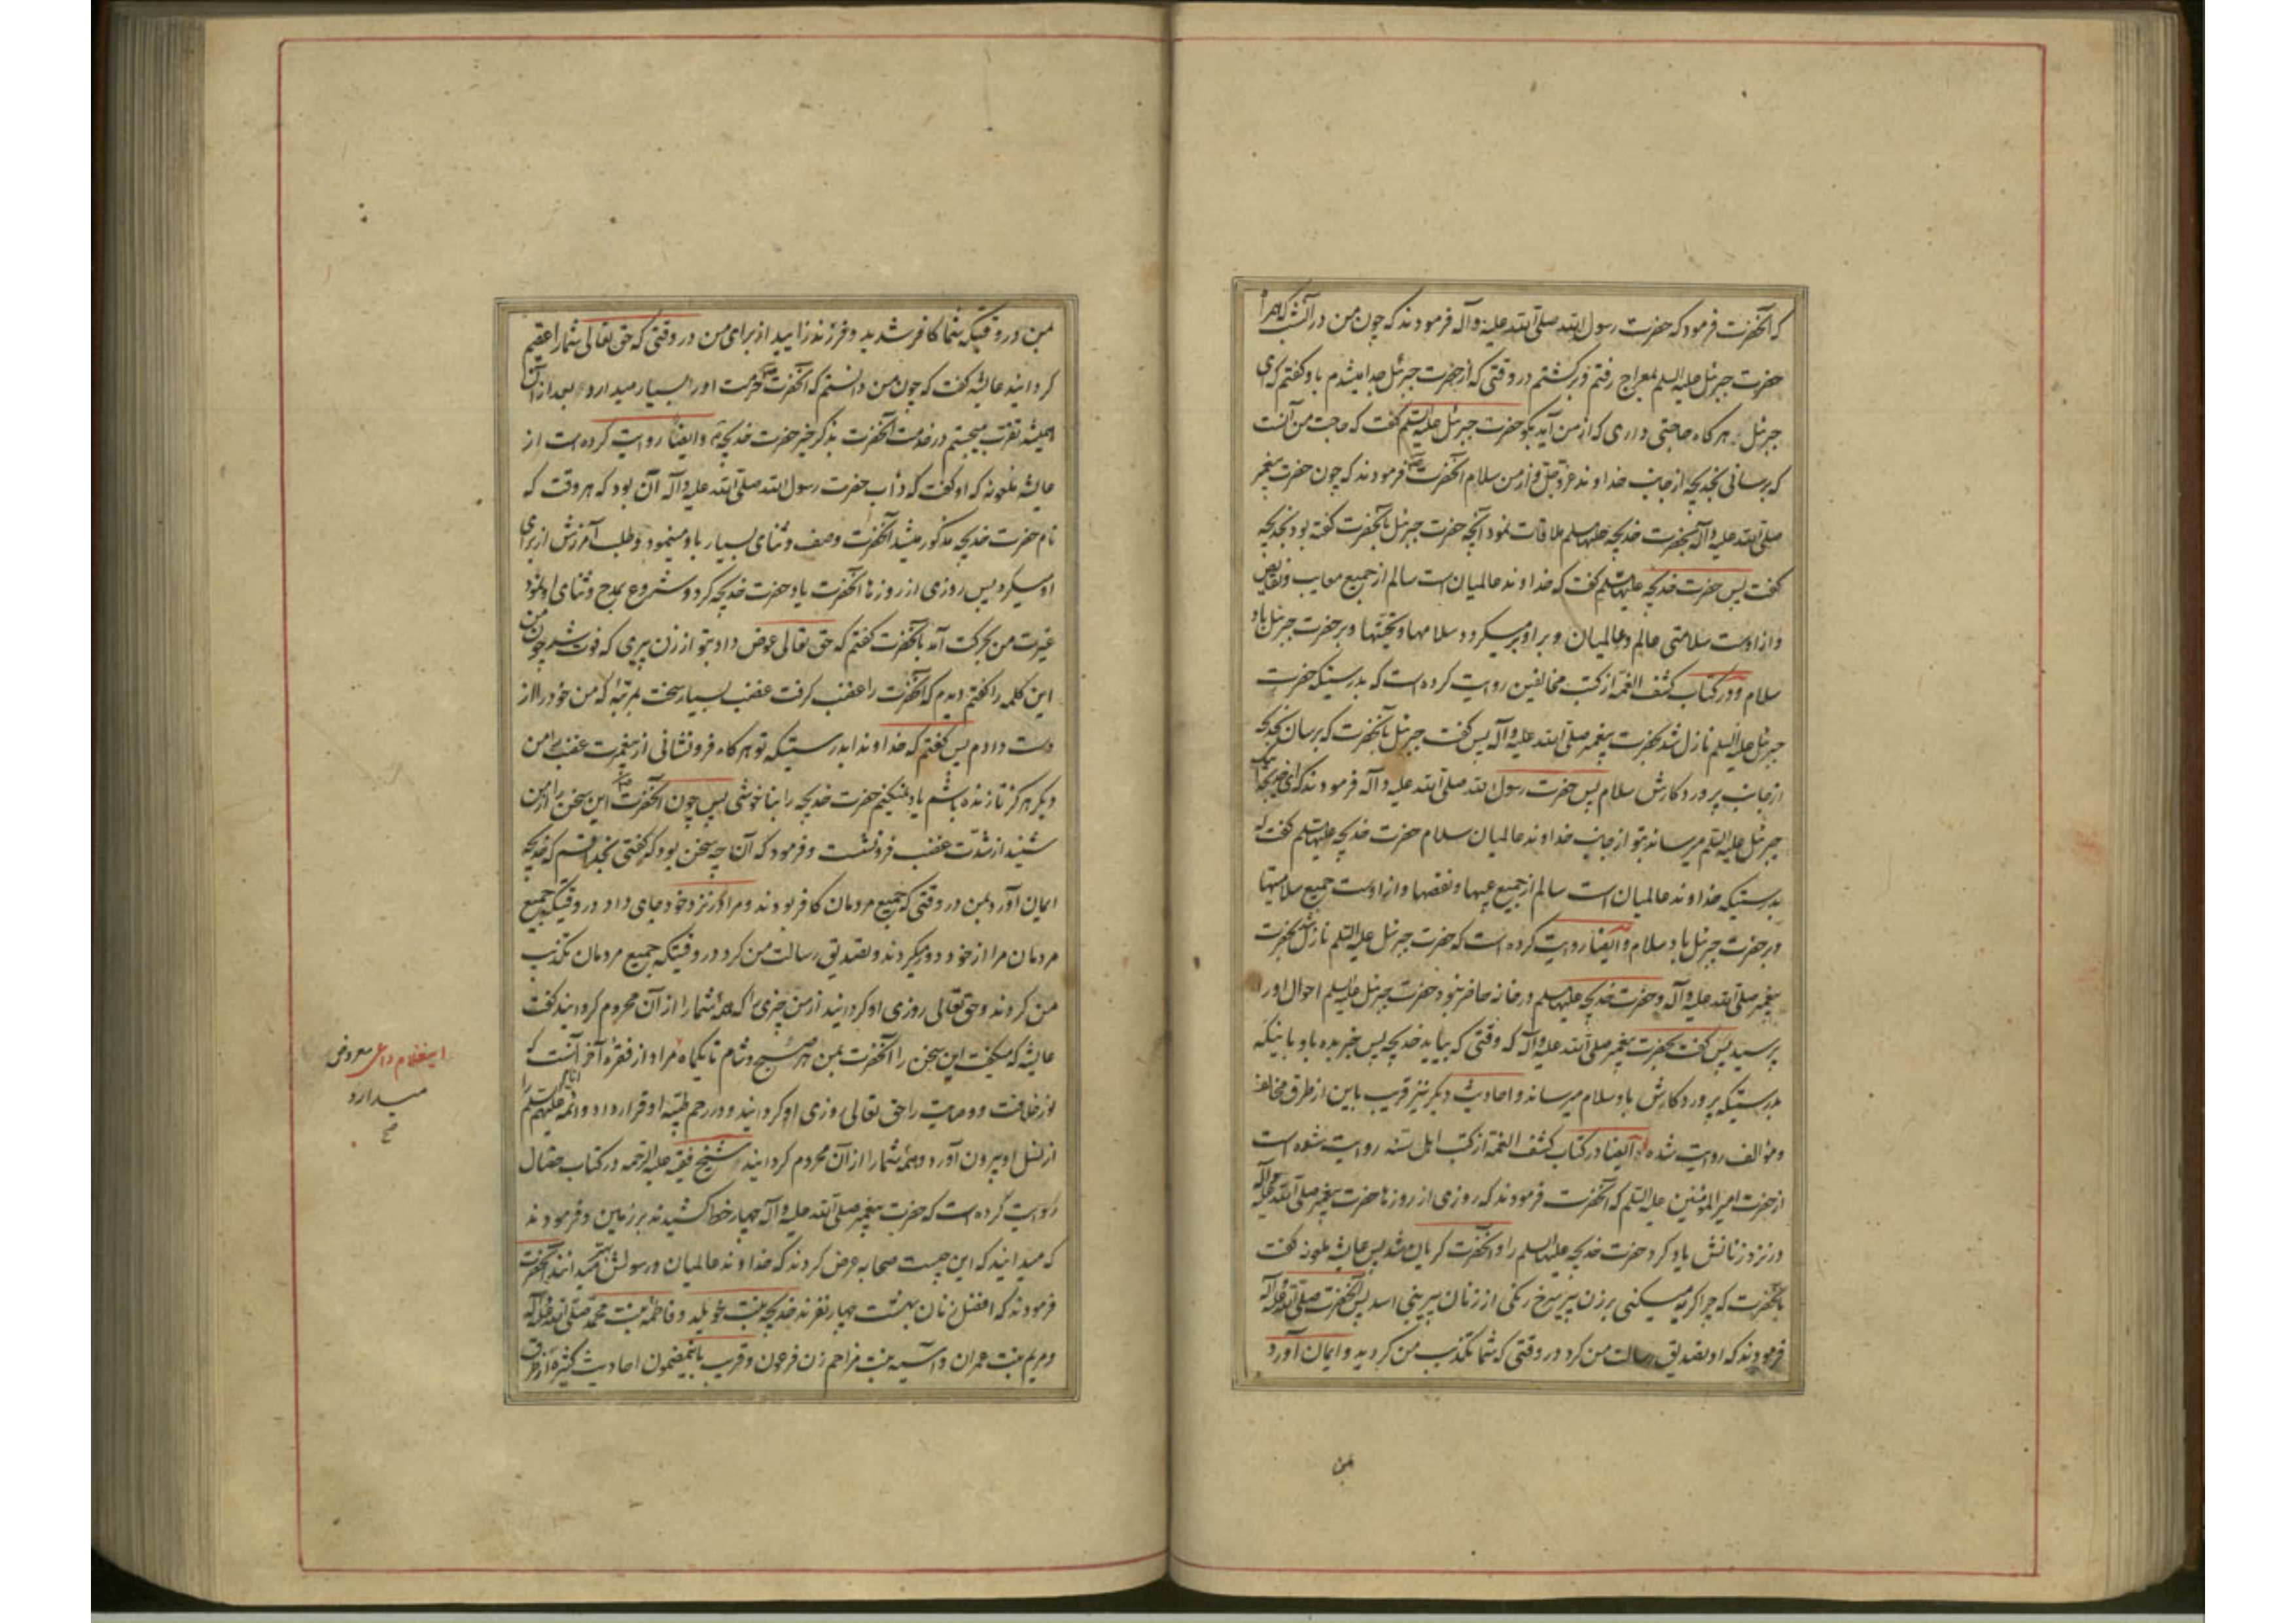 که آنحضرت فرمود که حضرت رسول الله صلی الله علیه و آله فرمودند که چون من در آن شب که همراه
حضرت جبرئیل علیه السلم بمعراج رفتم و برگشتم در وقتی که از حضرت جبرئیل جدا میشدم باو گفتم که ای
جبرئیل هر گاه حاجتی داری که از من آید بگو حضرت جبرئیل علیه السلم گفت که حاجت من آنست
که برسانی بخدیجه از جانب خداوند عز و جل و از من سلام آنحضرت فرمودند که چون حضرت پیغمبر
صلی الله علیه و آله بحضرت خدیجه علیها سلم ملاقات نمود آنچه حضرت جبرئیل بآنحضرت گفته بود بخدیجه
گفت پس حضرت خدیجه علیها سلم گفت که خداوند عالمیان است سالم از جمیع معایب و نقایص
و از اوست سلامتی عالم و عالمیان و بر او برمیگردد سلامها و تحیتها و بر حضرت جبرئیل باد
سلام و در کتاب کشف الغمه از کتب مخالفین روایت کرده است که بدرستیکه حضرت
جبرئیل علیه السلم نازل شد بحضرت پیغمبر صلی الله علیه و آله پس گفت جبرئیل بآنحضرت که برسان بخدیجه
از جانب پروردگارش سلام پس حضرت رسول الله صلی الله علیه و آله فرمودند که ای خدیجه اینک
جبرئیل علیه السلم میرساند بتو از جانب خداوند عالمیان سلام حضرت خدیجه علیها سلم گفت که
بدرستیکه خداوند عالمیان است سالم از جمیع عیبها و نقصها و از اوست جمیع سلامیتها
و بر حضرت جبرئیل باد سلام و ایضا روایت کرده است که حضرت جبرئیل علیه السلم نازل شد بحضرت
پیغمبر صلی الله علیه و آله و حضرت خدیجه علیها سلم در خانه حاضر نبود حضرت جبرئیل علیه السلم احوال او را
پرسید پس گفت بحضرت پیغمبر صلی الله علیه و آله که وقتی که بیاید خدیجه پس خبر بده باو باینکه
بدرستیکه پروردگارش باو سلام میرساند و احادیث دیگر نیز قریب باین از طرق مخالف
و مؤالف روایت شده ایضا در کتاب کشف الغمه از کتب اهل سنه روایت شده است
از حضرت امیر المؤمنین علیه السلم که آنحضرت فرمودند که روزی از روزها حضرت پیغمبر صلی الله علیه و آله
در نزد زنانش یاد کرد حضرت خدیجه علیها السلم را و آنحضرت گریان شد پس عایشه ملعونه گفت
بآنحضرت که چرا گریه میکنی بر زن پیر سرخ رنگی از زنان پیر بنی اسد پس آنحضرت صلی الله علیه و آله
فرمودند که او تصدیق رسالت من کرد در وقتی که شما تکذیب من کردید و ایمان آورد
بمن
بمن در وقتیکه شما کافر شدید و فرزند زایید از برای من در وقتی که حق تعالی شما را عقیم
گردانید عایشه گفت که چون من دانستم که آنحضرت حرمت او را بسیار میدارد بعد از آن
همیشه تقرب میجستم در خدمت آنحضرت بذکر خیر حضرت خدیجه و ایضا روایت کرده است از
عایشه ملعونه که او گفت که دأب حضرت رسول الله صلی الله علیه و آله آن بود که هر وقت که
نام حضرت خدیجه مذکور میشد آنحضرت وصف و ثنای بسیار باو مینمود و طلب آمرزش از برای
او میکرد پس روزی از روزها آنحضرت یاد حضرت خدیجه کرد و شروع بمدح و ثنای او نمود
غیرت من بحرکت آمد بآنحضرت گفتم که حق تعالی عوض داد بتو از زن پیری که فوت شد چون من
این کلمه را گفتم دیدم که آنحضرت را غضب گرفت غضب بسیار سخت بمرتبۀ که من خود را از
دست دادم پس گفتم که خداوندا بدرستیکه تو هر گاه فرونشانی از پیغمبرت غضب بمن
دیگر هرگز تا زنده باشم یاد نمیکنم حضرت خدیجه را بناخوشی پس چون آنحضرت این سخن را از من
شنید از شدت غضب فرونشست و فرمود که آن چه سخن بود که گفتی بخدا قسم که خدیجه
ایمان آورد بمن در وقتی که جمیع مردمان کافر بودند و مرا در نزد خود جای داد در وقتیکه جمیع
مردمان مرا از خود دور میکردند و تصدیق رسالت من کرد در وقتیکه جمیع مردمان تکذیب
من کردند و حق تعالی روزی او گردانید از من چیزی را که همۀ شما را از آن محروم گردانید گفت
عایشه که میگفت این سخن را آنحضرت بمن هر صبح و شام تا یکماه مراد از فقرۀ آخر آنست که
نور خلافت و وصایت را حق تعالی روزی او گردانید و در رحم طیبۀ او قرار داد و ائمه علیهم السلم را
از نسل او بیرون آورد و همۀ شما را از آن محروم گردانید شیخ فقیه علیه الرحمه در کتاب خصال
روایت کرده است که حضرت پیغمبر صلی الله علیه و آله چهار خط کشیدند بر زمین و فرمودند
که میدانید که این چیست صحابه عرض کردند که خداوند عالمیان و رسولش میدانند آنحضرت
فرمودند که افضل زنان بهشت چهار نفرند خدیجه بنت خویلد و فاطمه بنت محمد صلی الله علیه و آله
و مریم بنت عمران و آسیه بنت مزاحم زن فرعون و قریب باینمضمون احادیث کثیره از طرق
این غلام داعی معروض
میدارد
صح